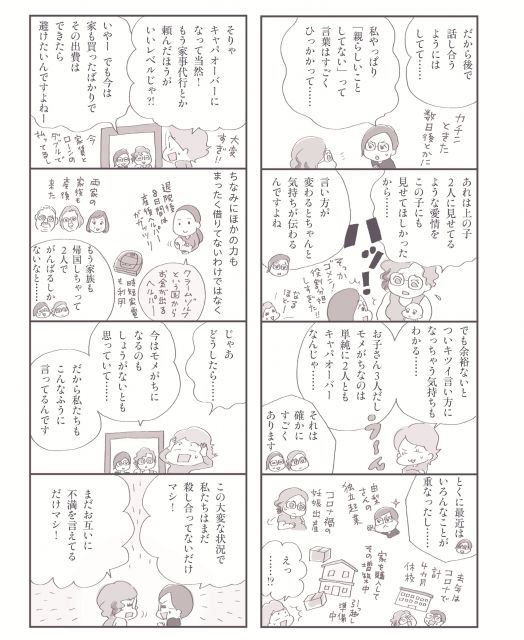 だから後で
話し合う
ようには
してて……
カチン
ときた
数日後とかに
私やっぱり
「親らしいこと
してない」って
言葉はすごく
ひっかかって……
あれは上の子
2人に見せてる
ような愛情を
この子にも
見せてほしかった
から……
ハッ！
言い方が
変わるとちゃんと
気持ちが伝わる
んですよね
すっかり
役割分担
しすぎてた
ゴメン！
なる
ほど
でも余裕ないと
ついキツイ言い方に
なっちゃう気持ちも
わかる……
お子さん3人だし
モメがちなのは
単純に2人とも
キャパオーバー
なんじゃ……
うーん
それは
確かに
すごく
あります
とくに最近は
いろんなことが
重なったし……
去年は
コロナで
計
4カ月
休校
由梨
さんの
独立起業
コロナ禍の
妊娠出産
家を購入して
その増築中
引っ越し
準備
中
えっ
……！？
そりゃ
キャパオーバーに
なって当然！
もう家事代行とか
頼んだほうが
いいレベルじゃ？！
大変
すぎ！！
いやー でも今は
家も買ったばかりで
その出費は
できたら
避けたいんですよねー
今
家賃と
ローンの
ダブルで
払ってる
ちなみにほかの力も
まったく借りてないわけではなく
退院後
8日間は
産後ヘルパーが
ガッツリ！
両家の
家族も
産後
来た
クラームゾルフ
という国から
お金が出る
ヘルパー
時短家電
も利用
もう家族も
帰国しちゃって
2人で
がんばるしか
ないなと……
じゃあ
どうしたら……
今はモメがちに
なるのも
しょうがないとも
思っていて……
だから私たちも
こんなふうに
言ってるんです
この大変な状況で
私たちはまだ
殺し合ってないだけ
マシ！
まだお互いに
不満を言えてる
だけマシ！